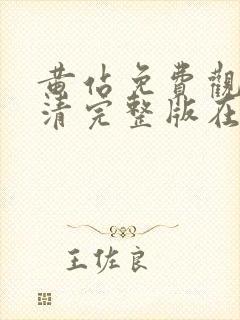 黄佔免費觀
清完整版在
王佐良